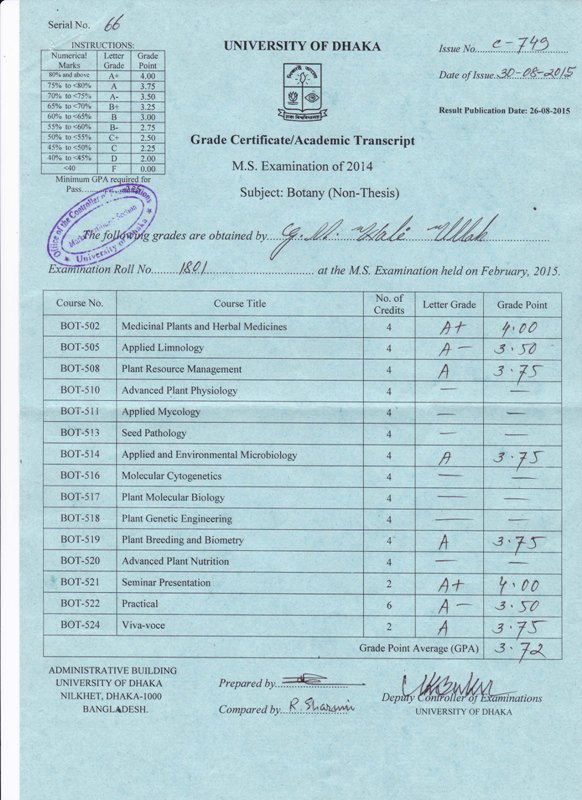 Serial No. 66
UNIVERSITY OF DHAKA
Issue No. C-749
Date of Issue. 30-08-2015
Result Publication Date: 26-08-2015
INSTRUCTIONS:
Numerical Marks Letter Grade Grade Point
80% and above A+ 4.00
75% to <80% A 3.75
70% to <75% A- 3.50
65% to <70% B+ 3.25
60% to <65% B 3.00
55% to <60% B- 2.75
50% to <55% C+ 2.50
45% to <50% C 2.25
40% to <45% D 2.00
<40 F 0.00
Minimum GPA required for
Pass
Office of the Controller of Examinations
University of Dhaka
Grade Certificate/Academic Transcript
M.S. Examination of 2014
Subject: Botany (Non-Thesis)
The following grades are obtained by G. M. Wali Ullah
Examination Roll No. 1801 at the M.S. Examination held on February, 2015.
Course No. Course Title No. of Credits Letter Grade Grade Point
BOT-502 Medicinal Plants and Herbal Medicines 4 A+ 4.00
BOT-505 Applied Limnology 4 A- 3.50
BOT-508 Plant Resource Management 4 A 3.75
BOT-510 Advanced Plant Physiology 4 — —
BOT-511 Applied Mycology 4 — —
BOT-513 Seed Pathology 4 — —
BOT-514 Applied and Environmental Microbiology 4 A 3.75
BOT-516 Molecular Cytogenetics 4 — —
BOT-517 Plant Molecular Biology 4 — —
BOT-518 Plant Genetic Engineering 4 — —
BOT-519 Plant Breeding and Biometry 4 A 3.75
BOT-520 Advanced Plant Nutrition 4 — —
BOT-521 Seminar Presentation 2 A+ 4.00
BOT-522 Practical 6 A- 3.50
BOT-524 Viva-voce 2 A 3.75
Grade Point Average (GPA) 3.72
ADMINISTRATIVE BUILDING
UNIVERSITY OF DHAKA
NILKHET, DHAKA-1000
BANGLADESH.
Prepared by
Compared by R. Sharmin
Deputy Controller of Examinations
UNIVERSITY OF DHAKA